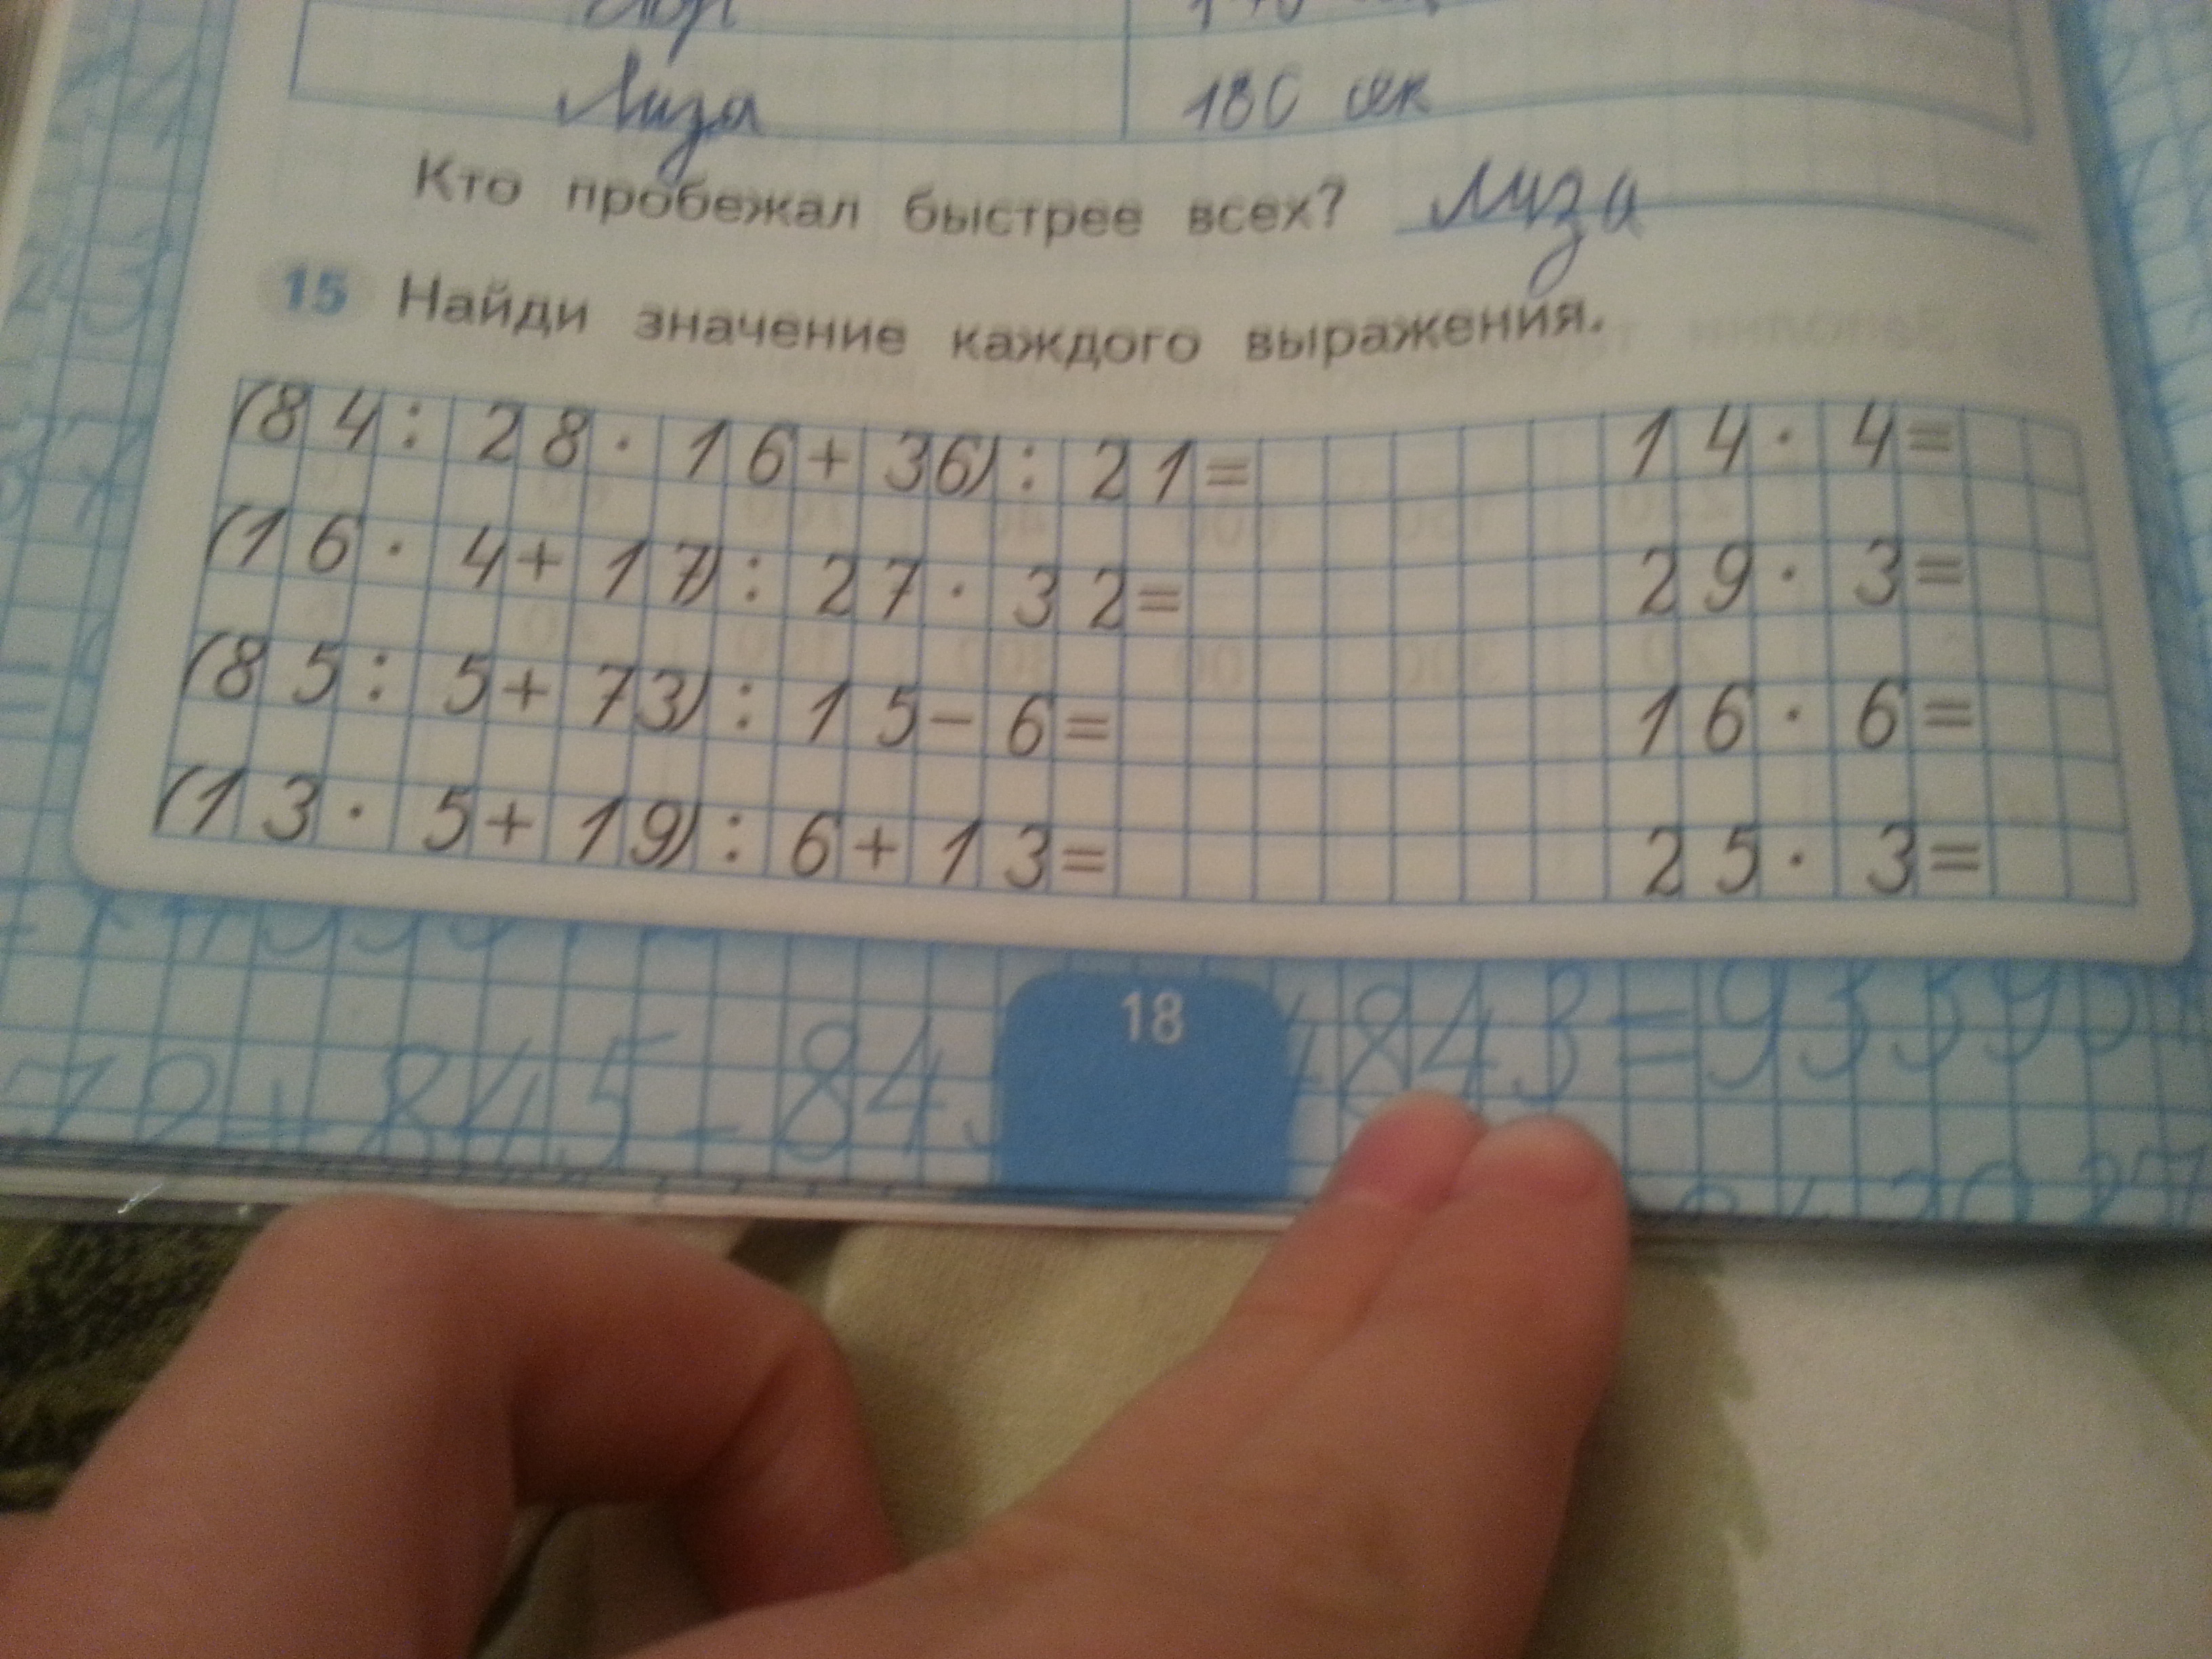 Лиза 180 сек
Кто пробежал быстрее всех? Лиза
15 Найди значение каждого выражения.
(84: 28 · 16+ 36) : 21= 14 · 4=
(16 · 4+ 17) : 27 · 32= 29 · 3=
(85: 5+ 73) : 15- 6= 16 · 6=
(13 · 5+ 19) : 6+ 13= 25 · 3=
18